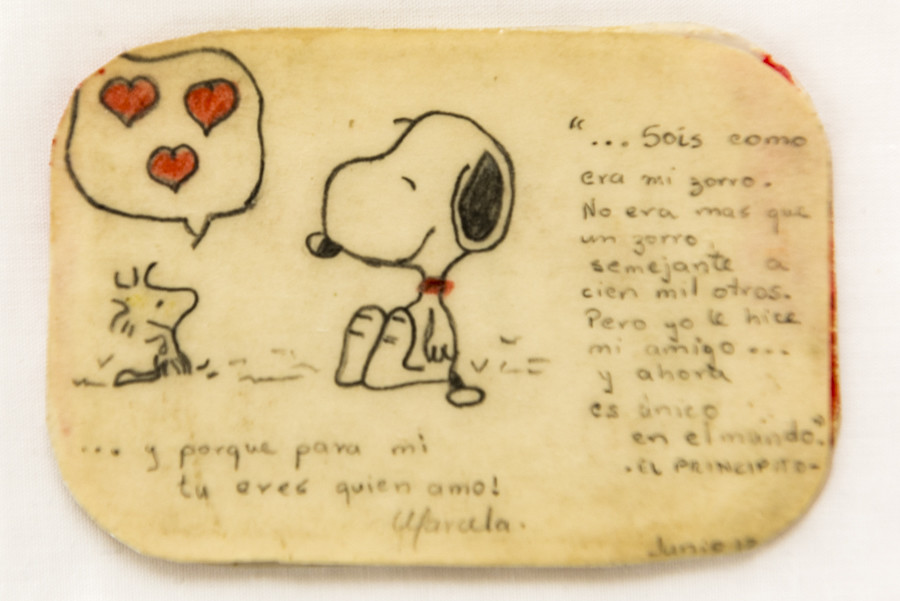 "... Sois como
era mi zorro.
No era mas que
un zorro
semejante a
cien mil otros.
Pero yo le hice
mi amigo...
y ahora
es único
en el mundo."
-EL PRINCIPITO-
... y porque para mi
tu eres quien amo!
Marcela.
Junio